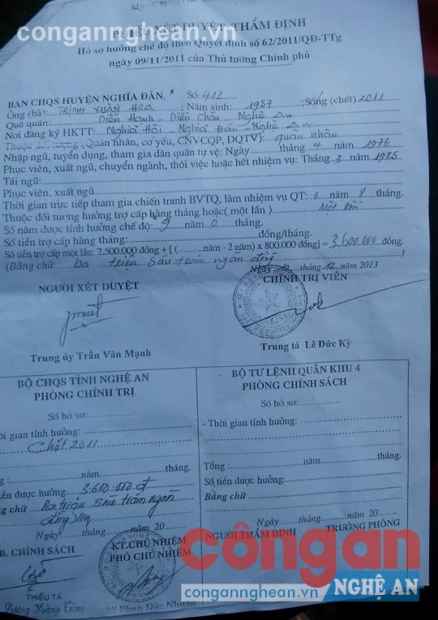 congannghean.vn
XÉT DUYỆT, THẨM ĐỊNH
Hồ sơ hưởng chế độ theo Quyết định số 62/2011/QĐ-TTg
ngày 09/11/2011 của Thủ tướng Chính phủ
BAN CHQS HUYỆN NGHĨA ĐÀN Số 412
Ông (bà): TRỊNH XUÂN HOA Năm sinh: 1957 Sống (chết) 2011
Quê quán: Diễn Hạnh - Diễn Châu - Nghệ An
Nơi đăng ký HKTT: Nghĩa Hội - Nghĩa Đàn - Nghệ An
Quân nhân, cơ yếu, CNVCQP, DQTV): quân nhân
Nhập ngũ, tuyển dụng, tham gia dân quân tự vệ: Ngày tháng 4 năm 1976
Phục viên, xuất ngũ, chuyển ngành, thôi việc hoặc hết nhiệm vụ: Tháng 2 năm 1985
Tái ngũ:
Phục viên, xuất ngũ
Thời gian trực tiếp tham gia chiến tranh BVTQ, làm nhiệm vụ QT: năm tháng.
Thuộc đối tượng hưởng trợ cấp hàng tháng hoặc (một lần) Một lần
Số năm được tính hưởng chế độ năm 0 tháng.
Số tiền trợ cấp hàng tháng: đồng/tháng.
Số tiền trợ cấp một lần: 2.500.000 đồng + [( năm - 2 năm) x 800.000 đồng] = 3.600.000 đồng.
(Bằng chữ: Ba triệu sáu trăm ngàn đồng
Ngày 12 năm 2013
NGƯỜI XÉT DUYỆT
CHÍNH TRỊ VIÊN
Trung úy Trần Văn Mạnh
Trung tá Lê Đức Kỳ
BỘ CHQS TỈNH NGHỆ AN
PHÒNG CHÍNH TRỊ
Số hồ sơ
gian tính hưởng:
Chết 2011
năm tháng.
tiền được hưởng: 3.600.000 đ
chữ: Ba triệu sáu trăm ngàn
tháng năm 20
B. CHÍNH SÁCH
KT. CHỦ NHIỆM
PHÓ CHỦ NHIỆM
THIẾU TÁ
BỘ TƯ LỆNH QUÂN KHU 4
PHÒNG CHÍNH SÁCH
Số hồ sơ:
- Thời gian tính hưởng:
Tổng năm tháng.
Số tiền được hưởng:
Bằng chữ:
Ngày tháng năm 20
NGƯỜI THẨM ĐỊNH TRƯỞNG PHÒNG
Công an
congannghean.vn NGHỆ AN